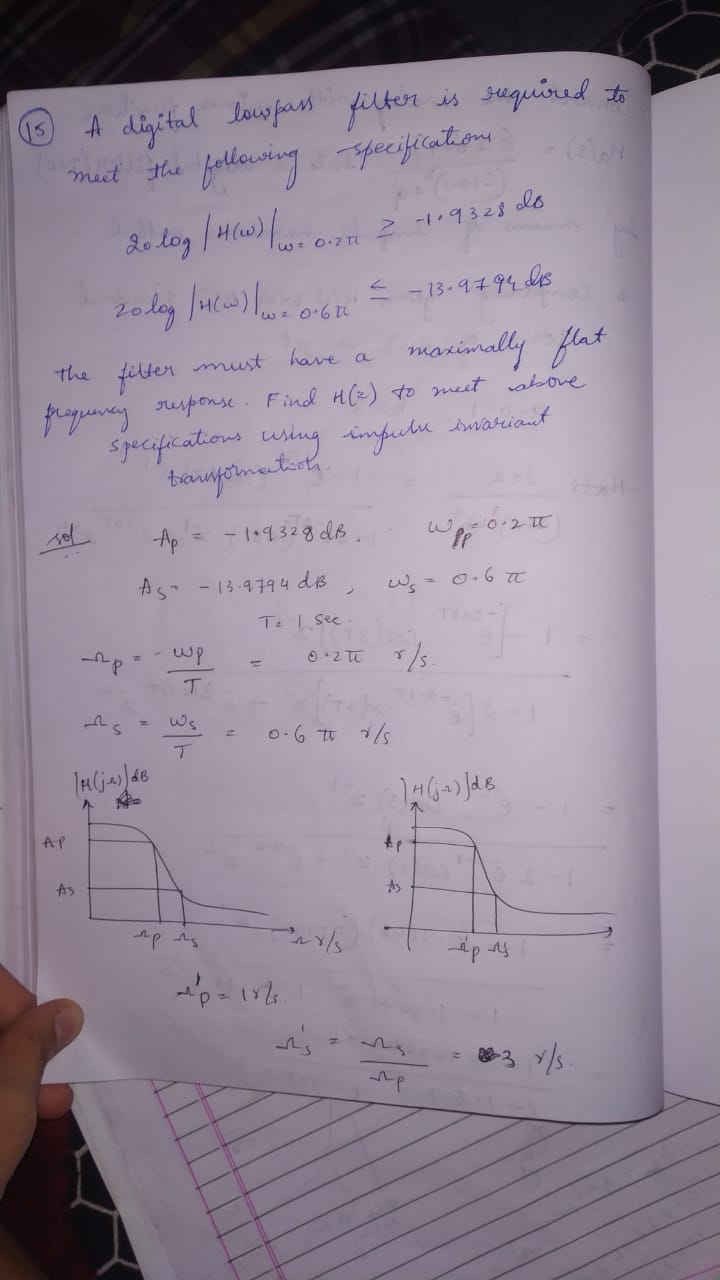 15 A digital lowpass filter is required to
meet the following specifications
20 log |H(ω)|ω = 0.2π ≥ -1.9328 dB
20 log |H(ω)|ω = 0.6π ≤ -13.9794 dB
The filter must have a maximally flat
frequency response. Find H(z) to meet above
specifications using impulse invariant
transformation.
sol Ap = -1.9328 dB, ωp = 0.2π
As = -13.9794 dB, ωs = 0.6π
T = 1 sec.
Ωp = ωp/T = 0.2π r/s.
Ωs = ωs/T = 0.6π r/s
|H(jΩ)|dB |H(jΩ)|dB
AP Ap
As As
Ωp Ωs Ω r/s Ω'p Ω's
Ω'p = 1 r/s.
Ω's = Ωs/Ωp = 3 r/s.